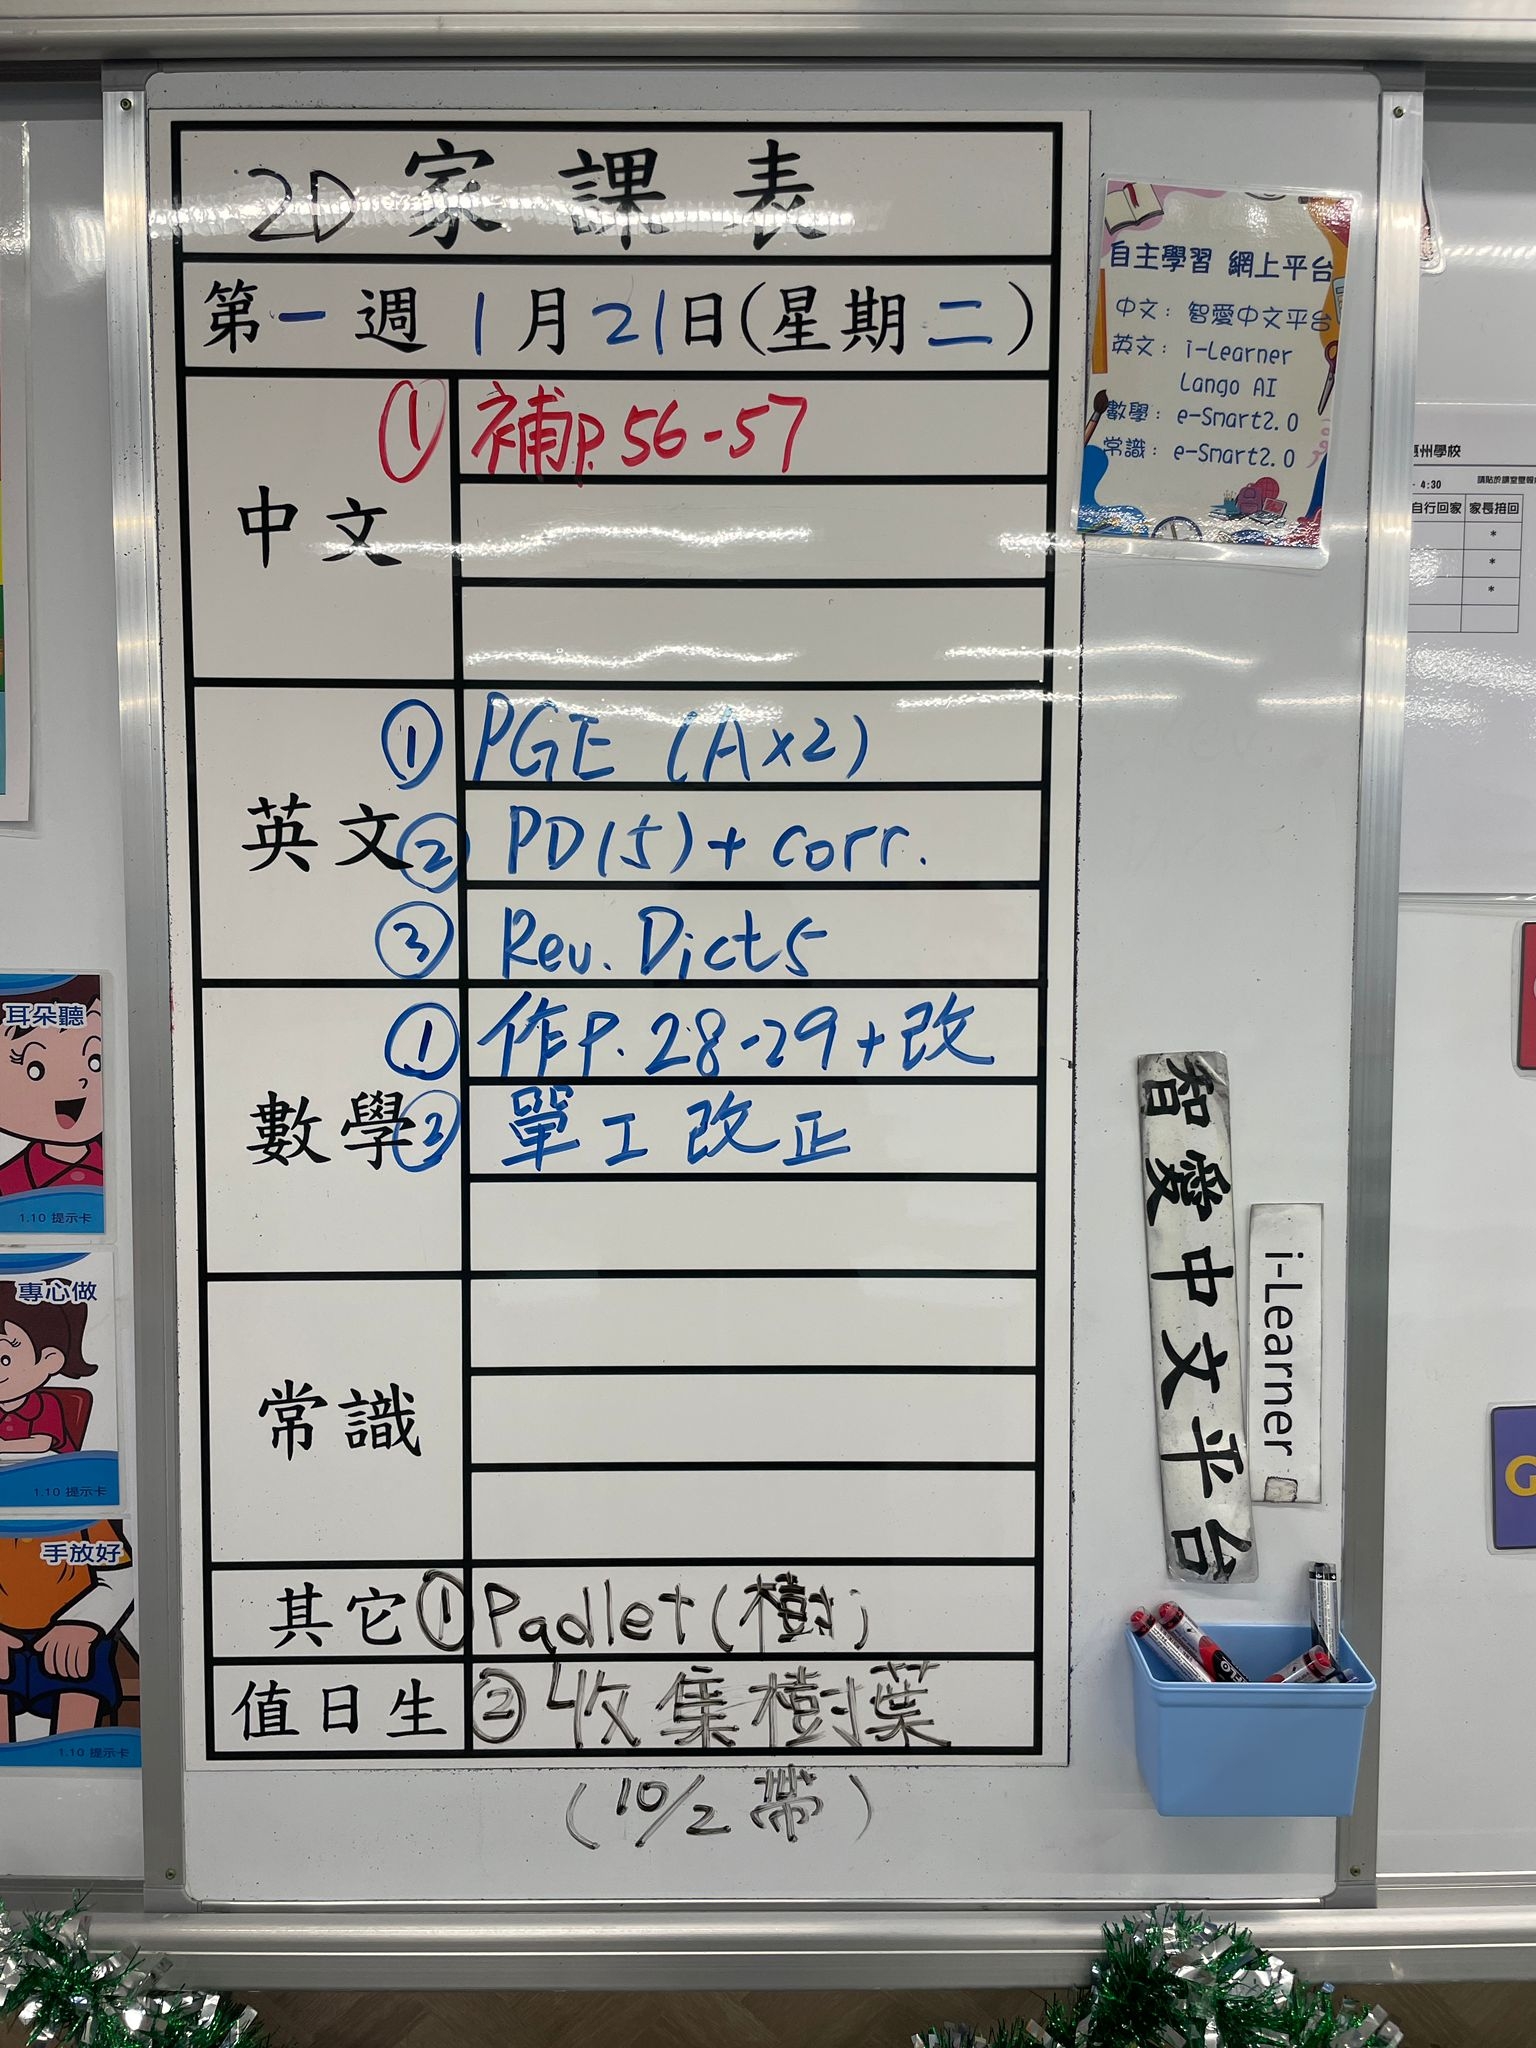 2D 家課表
第一週 1月21日(星期二)
中文
① 補p.56-57
英文
① PGE (A×2)
② PD(5)+ corr.
③ Rev. Dict5
數學
① 作P.28-29+改
② 單工改正
常識
其它
① Padlet(樹)
值日生
② 收集樹葉
(10/2 帶)
自主學習 網上平台
中文：智愛中文平台
英文：i-Learner
Lango AI
數學：e-Smart2.0
常識：e-Smart2.0
州學校
- 4:30
自行回家 家長接回
*
*
*
智愛中文平台
i-Learner
耳朵聽
1.10 提示卡
專心做
1.10 提示卡
手放好
1.10 提示卡
G